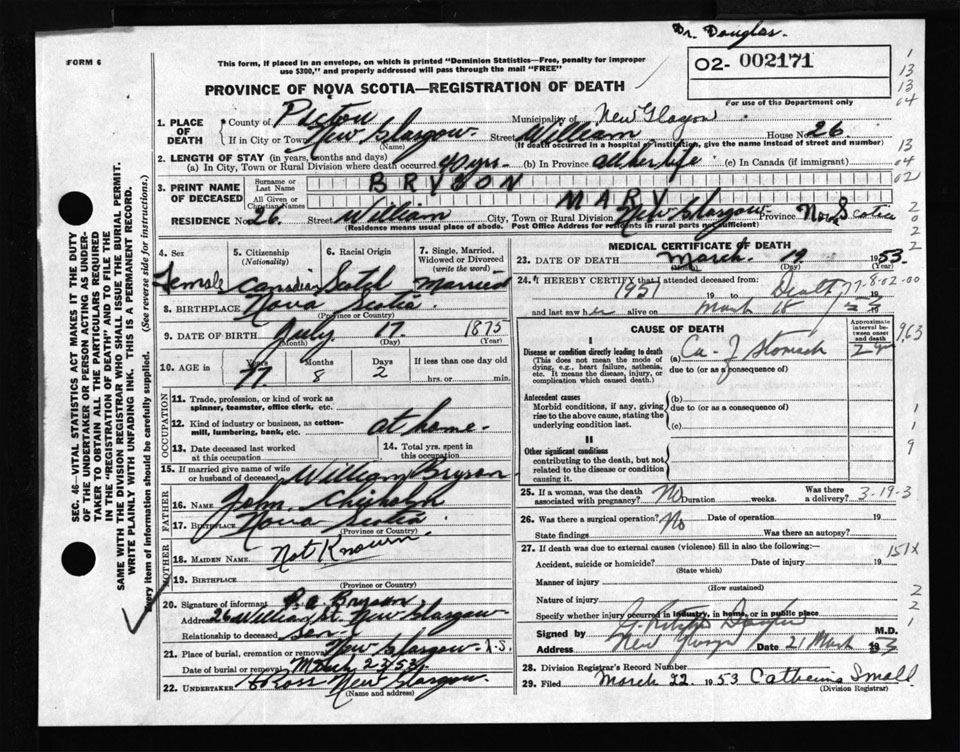 Dr. Douglas.
FORM 6
This form, if placed in an envelope, on which is printed "Dominion Statistics—Free, penalty for improper
use $300," and properly addressed will pass through the mail "FREE"
02- 002171
For use of the Department only
PROVINCE OF NOVA SCOTIA—REGISTRATION OF DEATH
1. PLACE OF DEATH
County of Pictou Municipality of New Glasgow
If in City or Town New Glasgow (Name) Street William House No. 26
(If death occurred in a hospital or institution, give the name instead of street and number)
2. LENGTH OF STAY (in years, months and days)
(a) In City, Town or Rural Division where death occurred 40 yrs. (b) In Province all her life (c) In Canada (if immigrant)
3. PRINT NAME OF DECEASED
Surname or Last Name BRYSON
All Given or Christian Names MARY
RESIDENCE No. 26 Street William City, Town or Rural Division New Glasgow Province Nova Scotia
(Residence means usual place of abode. Post Office Address for residents in rural parts not sufficient)
4. Sex Female
5. Citizenship (Nationality) Canadian
6. Racial Origin Scotch
7. Single, Married, Widowed or Divorced (write the word) Married
8. BIRTHPLACE Nova Scotia
(Province or Country)
9. DATE OF BIRTH July 17 1875
(Month) (Day) (Year)
10. AGE in Years 77 Months 8 Days 2 If less than one day old
hrs. or min.
OCCUPATION
11. Trade, profession, or kind of work as
spinner, teamster, office clerk, etc.
12. Kind of industry or business, as cotton-
mill, lumbering, bank, etc. at home
13. Date deceased last worked
at this occupation
14. Total yrs. spent in
this occupation
15. If married give name of wife
or husband of deceased William Bryson
FATHER
16. NAME John Chisholm
17. BIRTHPLACE Nova Scotia
(Province or Country)
MOTHER
18. MAIDEN NAME Not Known
19. BIRTHPLACE
(Province or Country)
20. Signature of informant Bryson
Address 26 William St. New Glasgow
Relationship to deceased Son
21. Place of burial, cremation or removal New Glasgow N.S.
Date of burial or removal March 53
22. UNDERTAKER Ross New Glasgow
(Name and address)
MEDICAL CERTIFICATE OF DEATH
23. DATE OF DEATH March 19 1953
(Month) (Day) (Year)
24. I HEREBY CERTIFY that I attended deceased from
1951 19 to Death 19
and last saw her alive on March 18 19 53
77-8-02-00
CAUSE OF DEATH
Approximate interval between onset and death
I
Disease or condition directly leading to death
(This does not mean the mode of
dying, e.g., heart failure, asthenia,
etc. It means the disease, injury, or
complication which caused death.)
(a) Ca. of Stomach
due to (or as a consequence of)
Antecedent causes
Morbid conditions, if any, giving
rise to the above cause, stating the
underlying condition last.
(b)
due to (or as a consequence of)
(c)
II
Other significant conditions
contributing to the death, but not
related to the disease or condition
causing it.
25. If a woman, was the death
associated with pregnancy? No Duration weeks. Was there
a delivery? 3-19-3
26. Was there a surgical operation? No Date of operation 19
State findings Was there an autopsy?
27. If death was due to external causes (violence) fill in also the following:—
Accident, suicide or homicide? Date of injury 19
(State which)
151x
Manner of injury
(How sustained)
Nature of injury
Specify whether injury occurred in industry, in home, or in public place
Signed by Douglas M.D.
Address New Glasgow Date 21 March 1953
28. Division Registrar's Record Number
29. Filed March 22 1953 Catherine Small
(Division Registrar)
SEC. 46—VITAL STATISTICS ACT MAKES IT THE DUTY
OF THE UNDERTAKER OR PERSON ACTING AS UNDER-
TAKER TO OBTAIN ALL THE PARTICULARS REQUIRED
IN THE "REGISTRATION OF DEATH" AND TO FILE THE
SAME WITH THE DIVISION REGISTRAR WHO SHALL ISSUE THE BURIAL PERMIT.
WRITE PLAINLY WITH UNFADING INK. THIS IS A PERMANENT RECORD.
Every item of information should be carefully supplied. (See reverse side for instructions.)
1
13
13
04
13
04
02
2
0
2
2
963
1
1
9
2
2
1